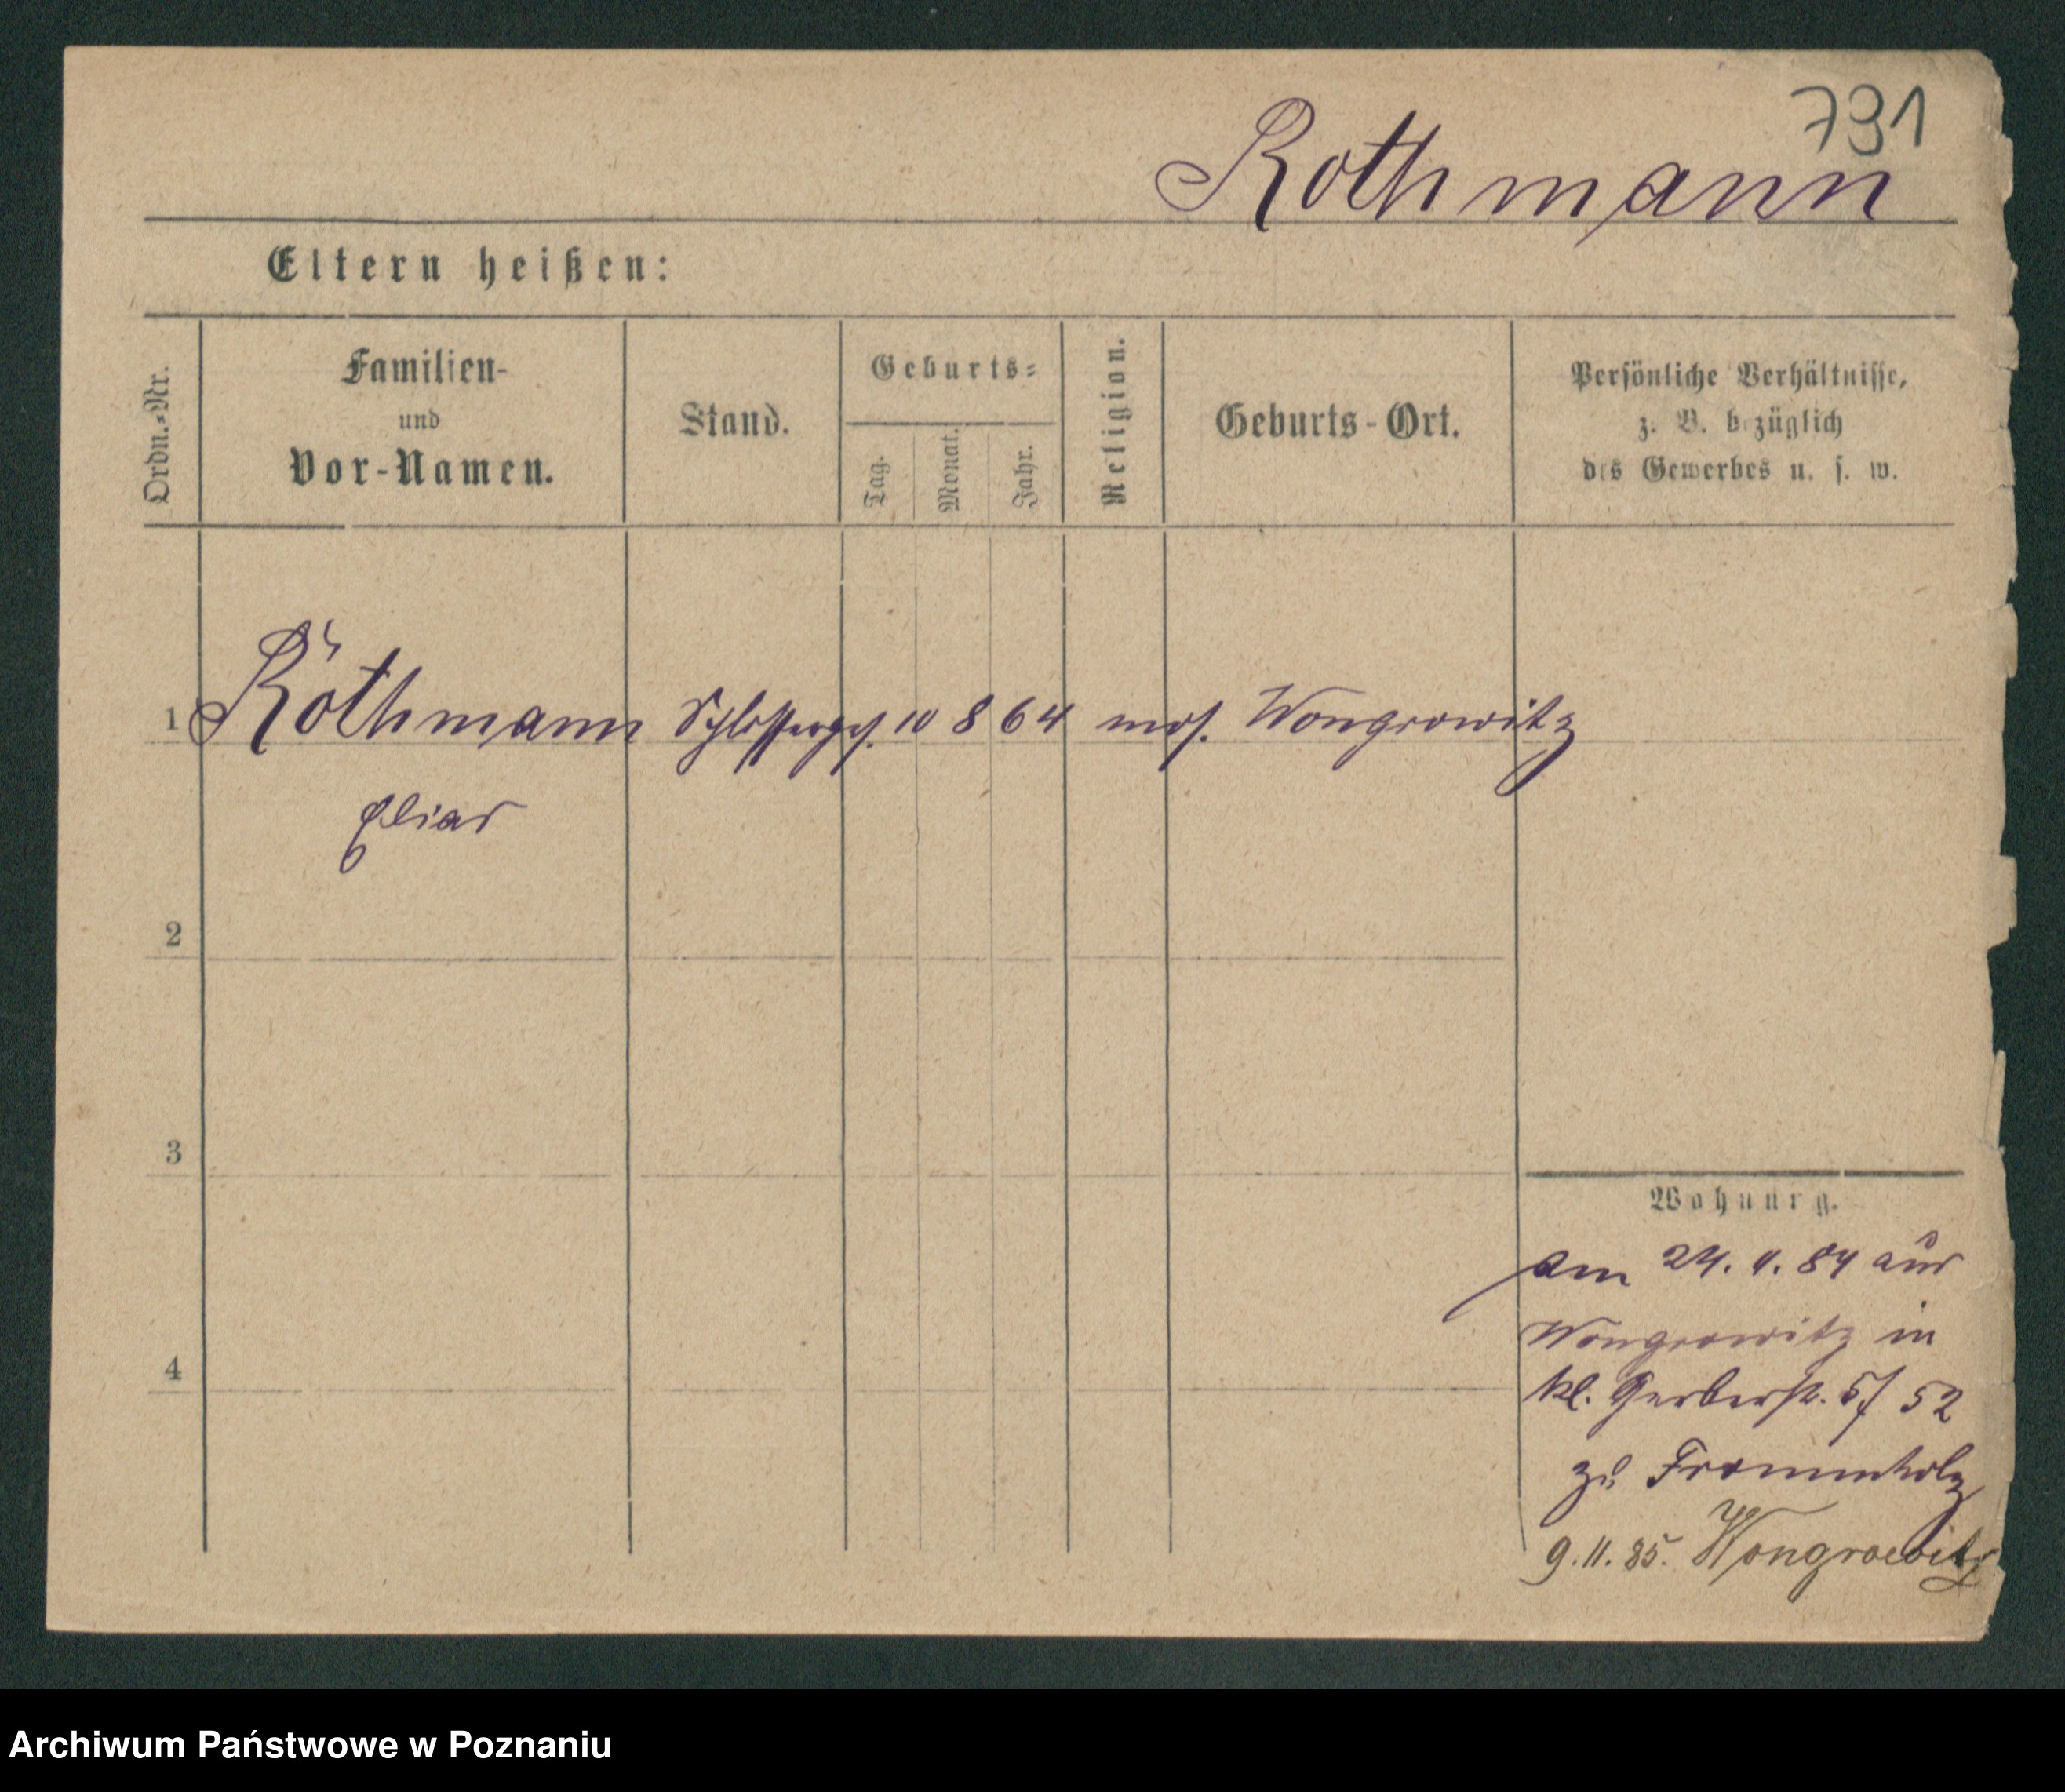 791
Rothmann
Eltern heißen:
Ordn.-Nr.
Familien-
und
Vor-Namen.
Stand.
Geburts-
Tag.
Monat.
Jahr.
Religion.
Geburts-Ort.
Persönliche Verhältnisse,
z. B. bezüglich
des Gewerbes u. s. w.
1 Röthmann Schlosserges. 10 8 64 mos. Wongrowitz
Elias
2
3
4
Wohnung.
am 24. 4. 84 aus
Wongrowitz in
kl. Gerberstr. 5/ 52
zu Frommholz
9.11.85. Wongrowitz
Archiwum Państwowe w Poznaniu